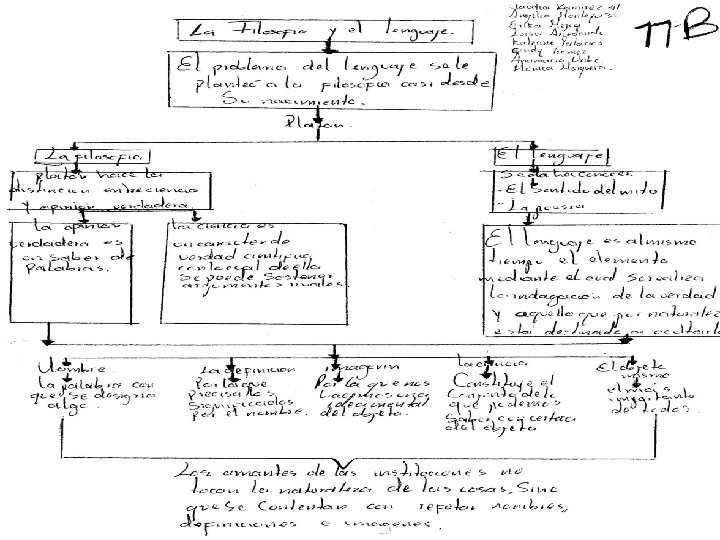 Claudia Ramirez
Angelica
Erika Mejia
Luisa
Katerine Palacios
Gomez
Anamaria Uribe
Monica Mosquera
11B
La Filosofia y el lenguaje.
El problema del lenguaje se le
planteó a la filosofia casi desde
Su nacimiento.
Platon.
La filosofia
platón hace la
distincion entre ciencia
y opinion verdadera
El lenguaje
Se da ha conocer
- El Sentido del mito
- La poesia
la opinion
verdadera es
un saber de
Palabras.
la ciencia es
un caracter de
verdad cientifica
con la cual de ella
se puede sostener
argumentos
El lenguaje es al mismo
tiempo el elemento
mediante el cual se realiza
la indagación de la verdad
y aquello que por naturaleza
esta destinado a ocultarla
Nombre
la palabra con
que se designa
algo.
La definicion
Por la que
precisa los
significados
por el nombre.
imagen
Por la que nos
hacemos una
idea mental
del objeto.
la ciencia
Constituye el
Conjunto de lo
que podemos
Saber con certeza
del objeto
El objeto
mismo
el mas
importante
de todos.
Los amantes de las instituciones no
tocan la naturaleza de las cosas, Sino
que se Contentan con refutar nombres,
definiciones e imagenes.